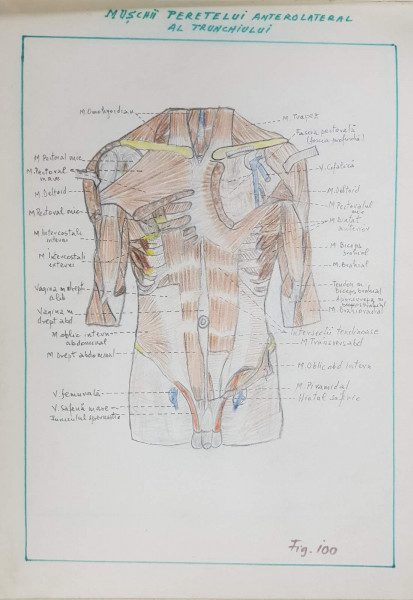 MUȘCHII PERETELUI ANTEROLATERAL
AL TRUNCHIULUI
M. Omohyoidian
M. Pectoral mic
M. Pectoral
mare
M. Deltoid
M. Pectoral mic
M. Intercostali
interni
M. Intercostali
externi
Vagina m drept
abd
Vagina m
drept abd
M. oblic intern
abdominal
M drept abdominal
V. femurală
V. Safenă mare
Funiculul spermatic
M. Trapez
Fascia pectorală
(fascia profundă)
V. Cefalică
M. Deltoid
M. Pectoralul
mic
M. Dințat
anterior
M. Biceps
brahial
M. Brahial
Tendon m
Biceps brahial
M.
Intersecții tendinoase
M. Transvers abd
M. Oblic abd intern
M. Piramidal
Hiatul safen
Fig. 100